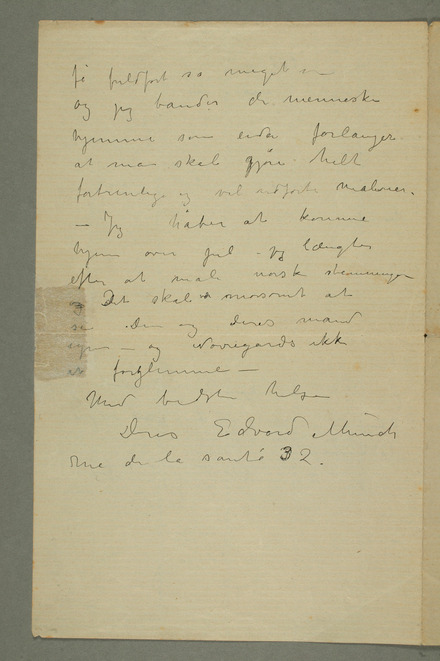 få fuldført så meget
og jeg bander de menneske
hjemme som endda forlanger
at man skal gjøre helt
fortrinlige og vel udførte malerier.
– Jeg håber at komme
hjem over jul – jeg længter
efter at male norsk stemninger
Det skal morsomt at
se Dem og Deres mand
igjen – og Novregårds ikke
at forglemme –
Med bedste hilsen
Deres Edvard Munch
rue de la santé 32.